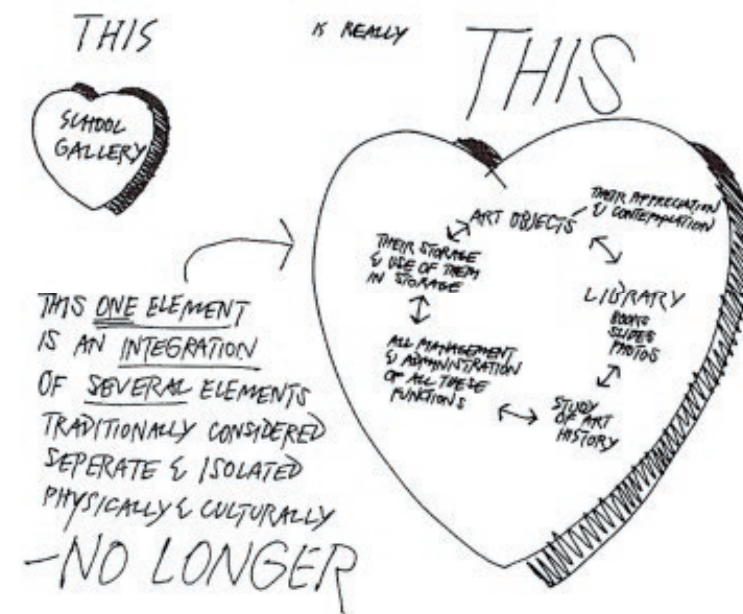 THIS
IS REALLY
THIS
SCHOOL
GALLERY
ART OBJECTS
THEIR APPRECIATION
& CONTEMPLATION
THEIR STORAGE
& USE OF THEM
IN STORAGE
LIBRARY
BOOKS
SLIDES
PHOTOS
ALL MANAGEMENT
& ADMINISTRATION
OF ALL THESE
FUNCTIONS
STUDY
OF ART
HISTORY
THIS ONE ELEMENT
IS AN INTEGRATION
OF SEVERAL ELEMENTS
TRADITIONALLY CONSIDERED
SEPERATE & ISOLATED
PHYSICALLY & CULTURALLY
–NO LONGER